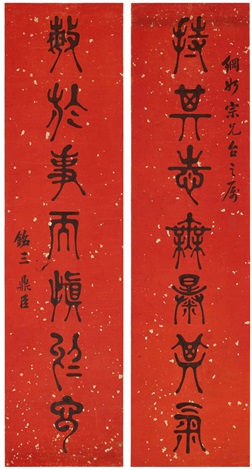 宗兄台之屬
持其志無暴其氣
敏於事而慎於言
銘三 鼎臣